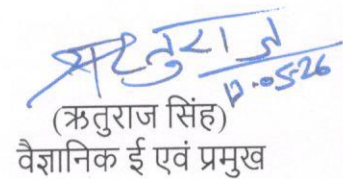 ऋतुराज
12.05.26
(ऋतुराज सिंह)
वैज्ञानिक ई एवं प्रमुख